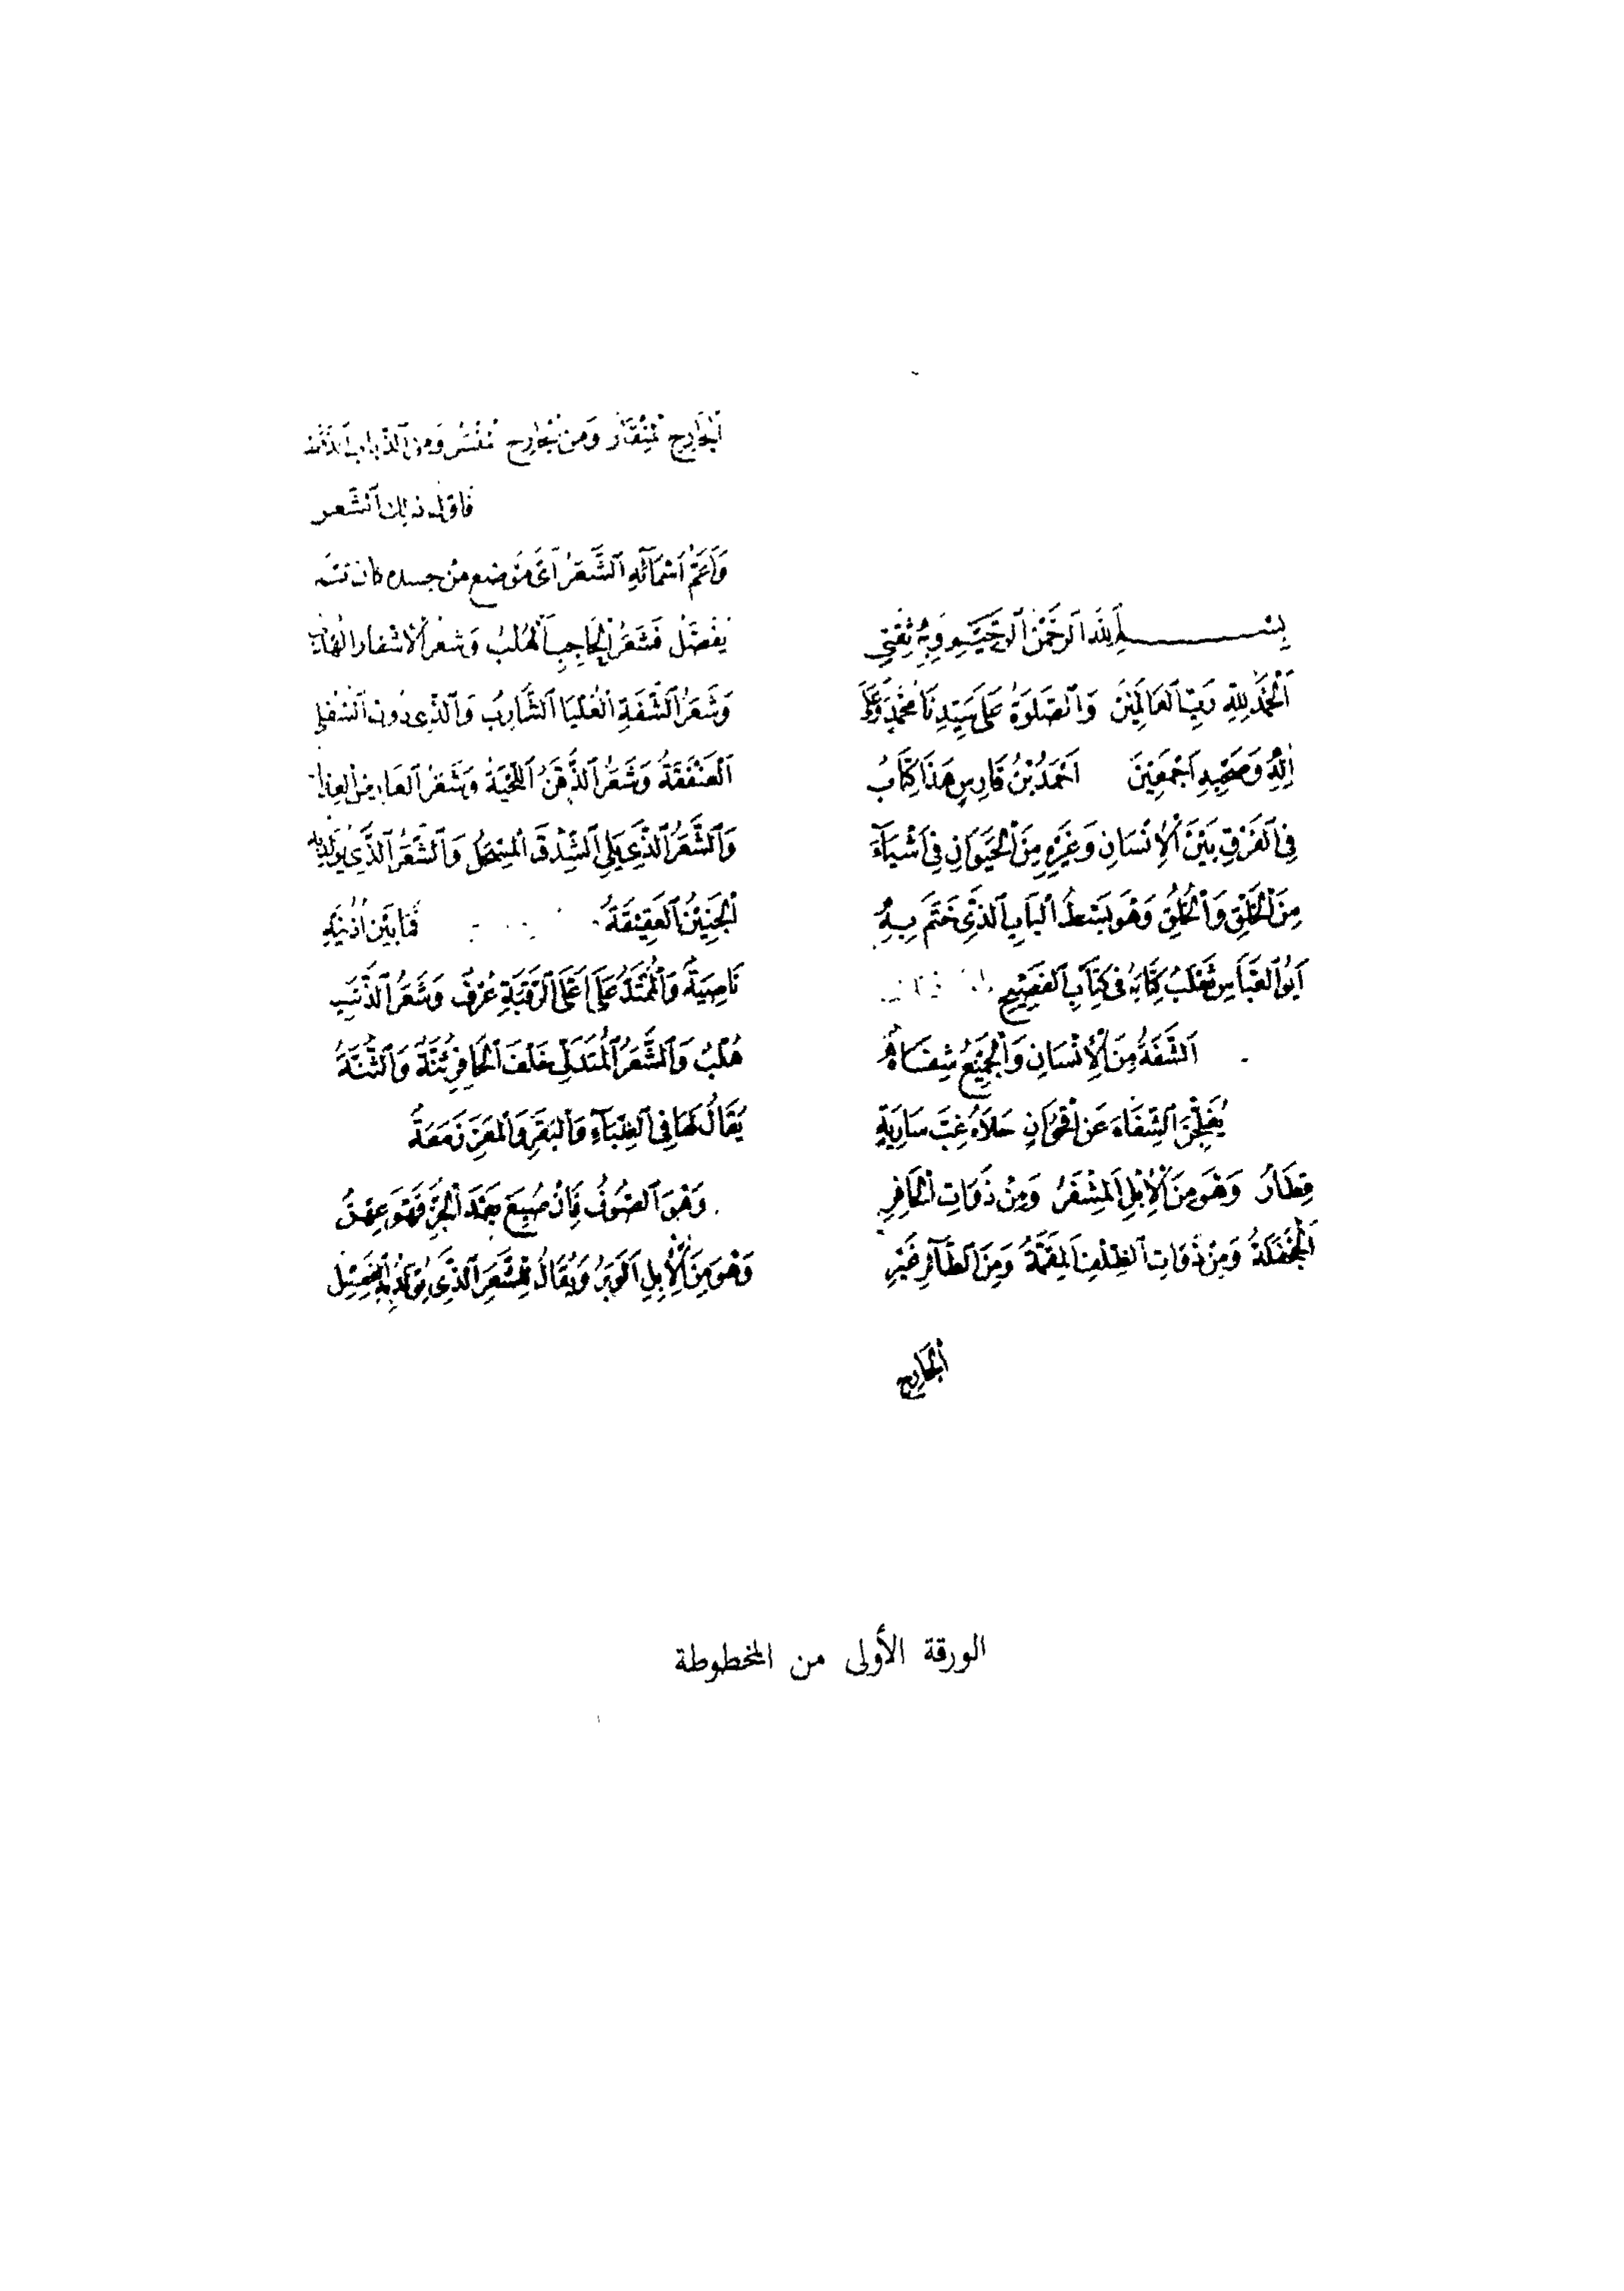 بِسْمِ اللَّهِ الرَّحْمَٰنِ الرَّحِيمِ وَبِهِ ثِقَتِي
اَلْحَمْدُ لِلَّهِ رَبِّ الْعَالَمِينَ وَالصَّلَوةُ عَلَى سَيِّدِنَا مُحَمَّدٍ وَعَلَى
اٰلِهِ وَصَحْبِهِ اَجْمَعِينَ اَحْمَدُ بْنُ فَارِسٍ هَذَا كِتَابُ
فِي الْفَرْقِ بَيْنَ الْاِنْسَانِ وَغَيْرِهِ مِنَ الْحَيَوَانِ فِي اَشْيَآءَ
مِنَ الْخَلْقِ وَالْخُلُقِ وَهُوَ بَسْطُ الْبَابِ الَّذِي خَتَمَ بِهِ
اَبُو الْعَبَّاسِ ثَعْلَبُ كِتَابَهُ فِي كِتَابِ الْفَصِيحِ
اَلشَّفَةُ مِنَ الْاِنْسَانِ وَالْجَمِيعُ شِفَاهُ
يُفَلِّجْنَ الشِّفَاهَ عَنْ اُقْحُوَانٍ جَلَاهُ غِبَّ سَارِيَةٍ
قِطَارُ وَهُوَ مِنَ الْاِبِلِ الْمِشْفَرُ وَمِنْ ذَوَاتِ الْحَافِرِ
الْجَحْفَلَةُ وَمِنْ ذَوَاتِ الظِّلْفِ الْمِقَمَّةُ وَمِنَ الطَّآئِرِ غَيْرِ
الْجَارِحِ
الْجَارِحِ مِنْقَارُ وَمِنَ الْجَارِحِ مِنْسَرُ وَمِنَ الذُّبَابِ
فَاَوَّلُ ذٰلِكَ الشَّعر
وَاَعَمُّ اَسْمَآئِهِ الشَّعَرُ اَيَّ مَوْضِعٍ مِنْ جسده كان ثمّ
يُفَصَّلُ فَشَعَرُ الْحَاجِبِ الْهُلْبُ وَشَعَرُ الْاَشْفَارِ
وَشَعَرُ الشَّفَةِ الْعُلْيَا الشَّارِبُ وَالَّذِي دُونَ السُّفْلى
الْعَنْفَقَةُ وَشَعَرُ الذَّقَنِ اللِّحْيَةُ وَشَعَرُ الْعَارِضِ الْعِذَار
وَالشَّعَرُ الَّذِي يَلِي الشِّدْقَ الْمِسْحَلُ وَالشَّعَرُ الَّذِي يُولَدُ بِهِ
الْجَنِينُ الْعَقِيقَةُ فَمَا بَيْنَ اُذُنَيْهِ
نَاصِيَةُ وَالْمُمْتَدُّ عَلَى اَعْلَى الرَّقَبَةِ عُرْفُ وَشَعَرُ الذَّنَبِ
هُلْبُ وَالشَّعَرُ الْمُتَدَلِّي خَلْفَ الْحَافِرِ ثُنَّةُ وَالثُّنَّةُ
يُقَالُ لَهَا فِي الظِّبَآءِ وَالْبَقَرِ وَالْمَعَزِ زَمَعَةُ
وَهُوَ الصُّوفُ فَاِنْ صُبِغَ بَعْدَ الْجَزِّ فَهُوَ عِهْنُ
وَهُوَ مِنَ الْاِبِلِ الْوَبَرُ وَيُقَالُ لِلشَّعَرِ الَّذِي يُولَدُ بِهِ الْفَصِيلُ
الورقة الأولى من المخطوطة